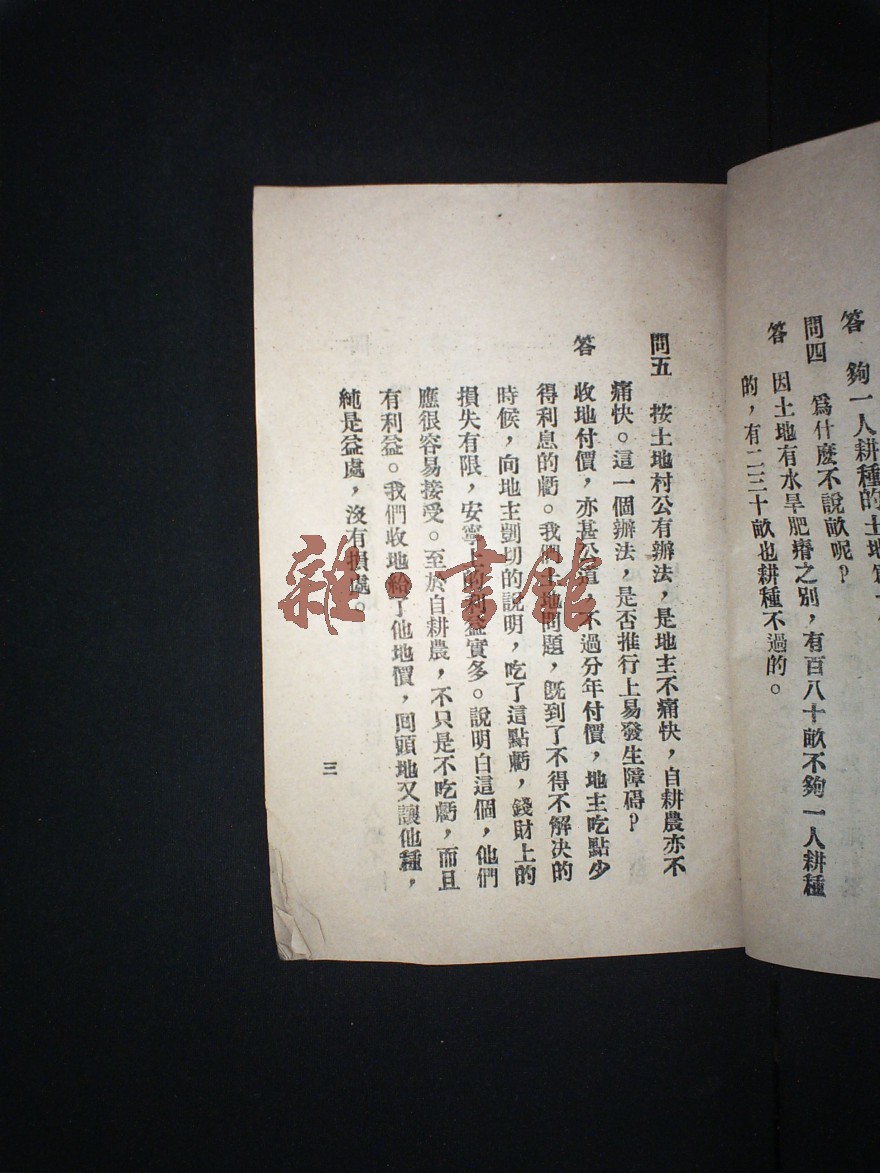 答 夠一人耕種的土地為
問四 爲什麼不說畝呢?
答 因土地有水旱肥瘠之別,有百八十畝不夠一人耕種
的,有二三十畝也耕種不過的。
問五 按土地村公有辦法,是地主不痛快,自耕農亦不
痛快。這一個辦法,是否推行上易發生障碍?
答 收地付價,亦甚公道,不過分年付價,地主吃點少
得利息的虧。我們土地問題,旣到了不得不解决的
時候,向地主剴切的說明,吃了這點虧,錢財上的
損失有限,安寧上的利益實多。說明白這個,他們
應很容易接受。至於自耕農,不只是不吃虧,而且
有利益。我們收地給了他地價,回頭地又讓他種,
純是益處,沒有損處。
三
雜·書館